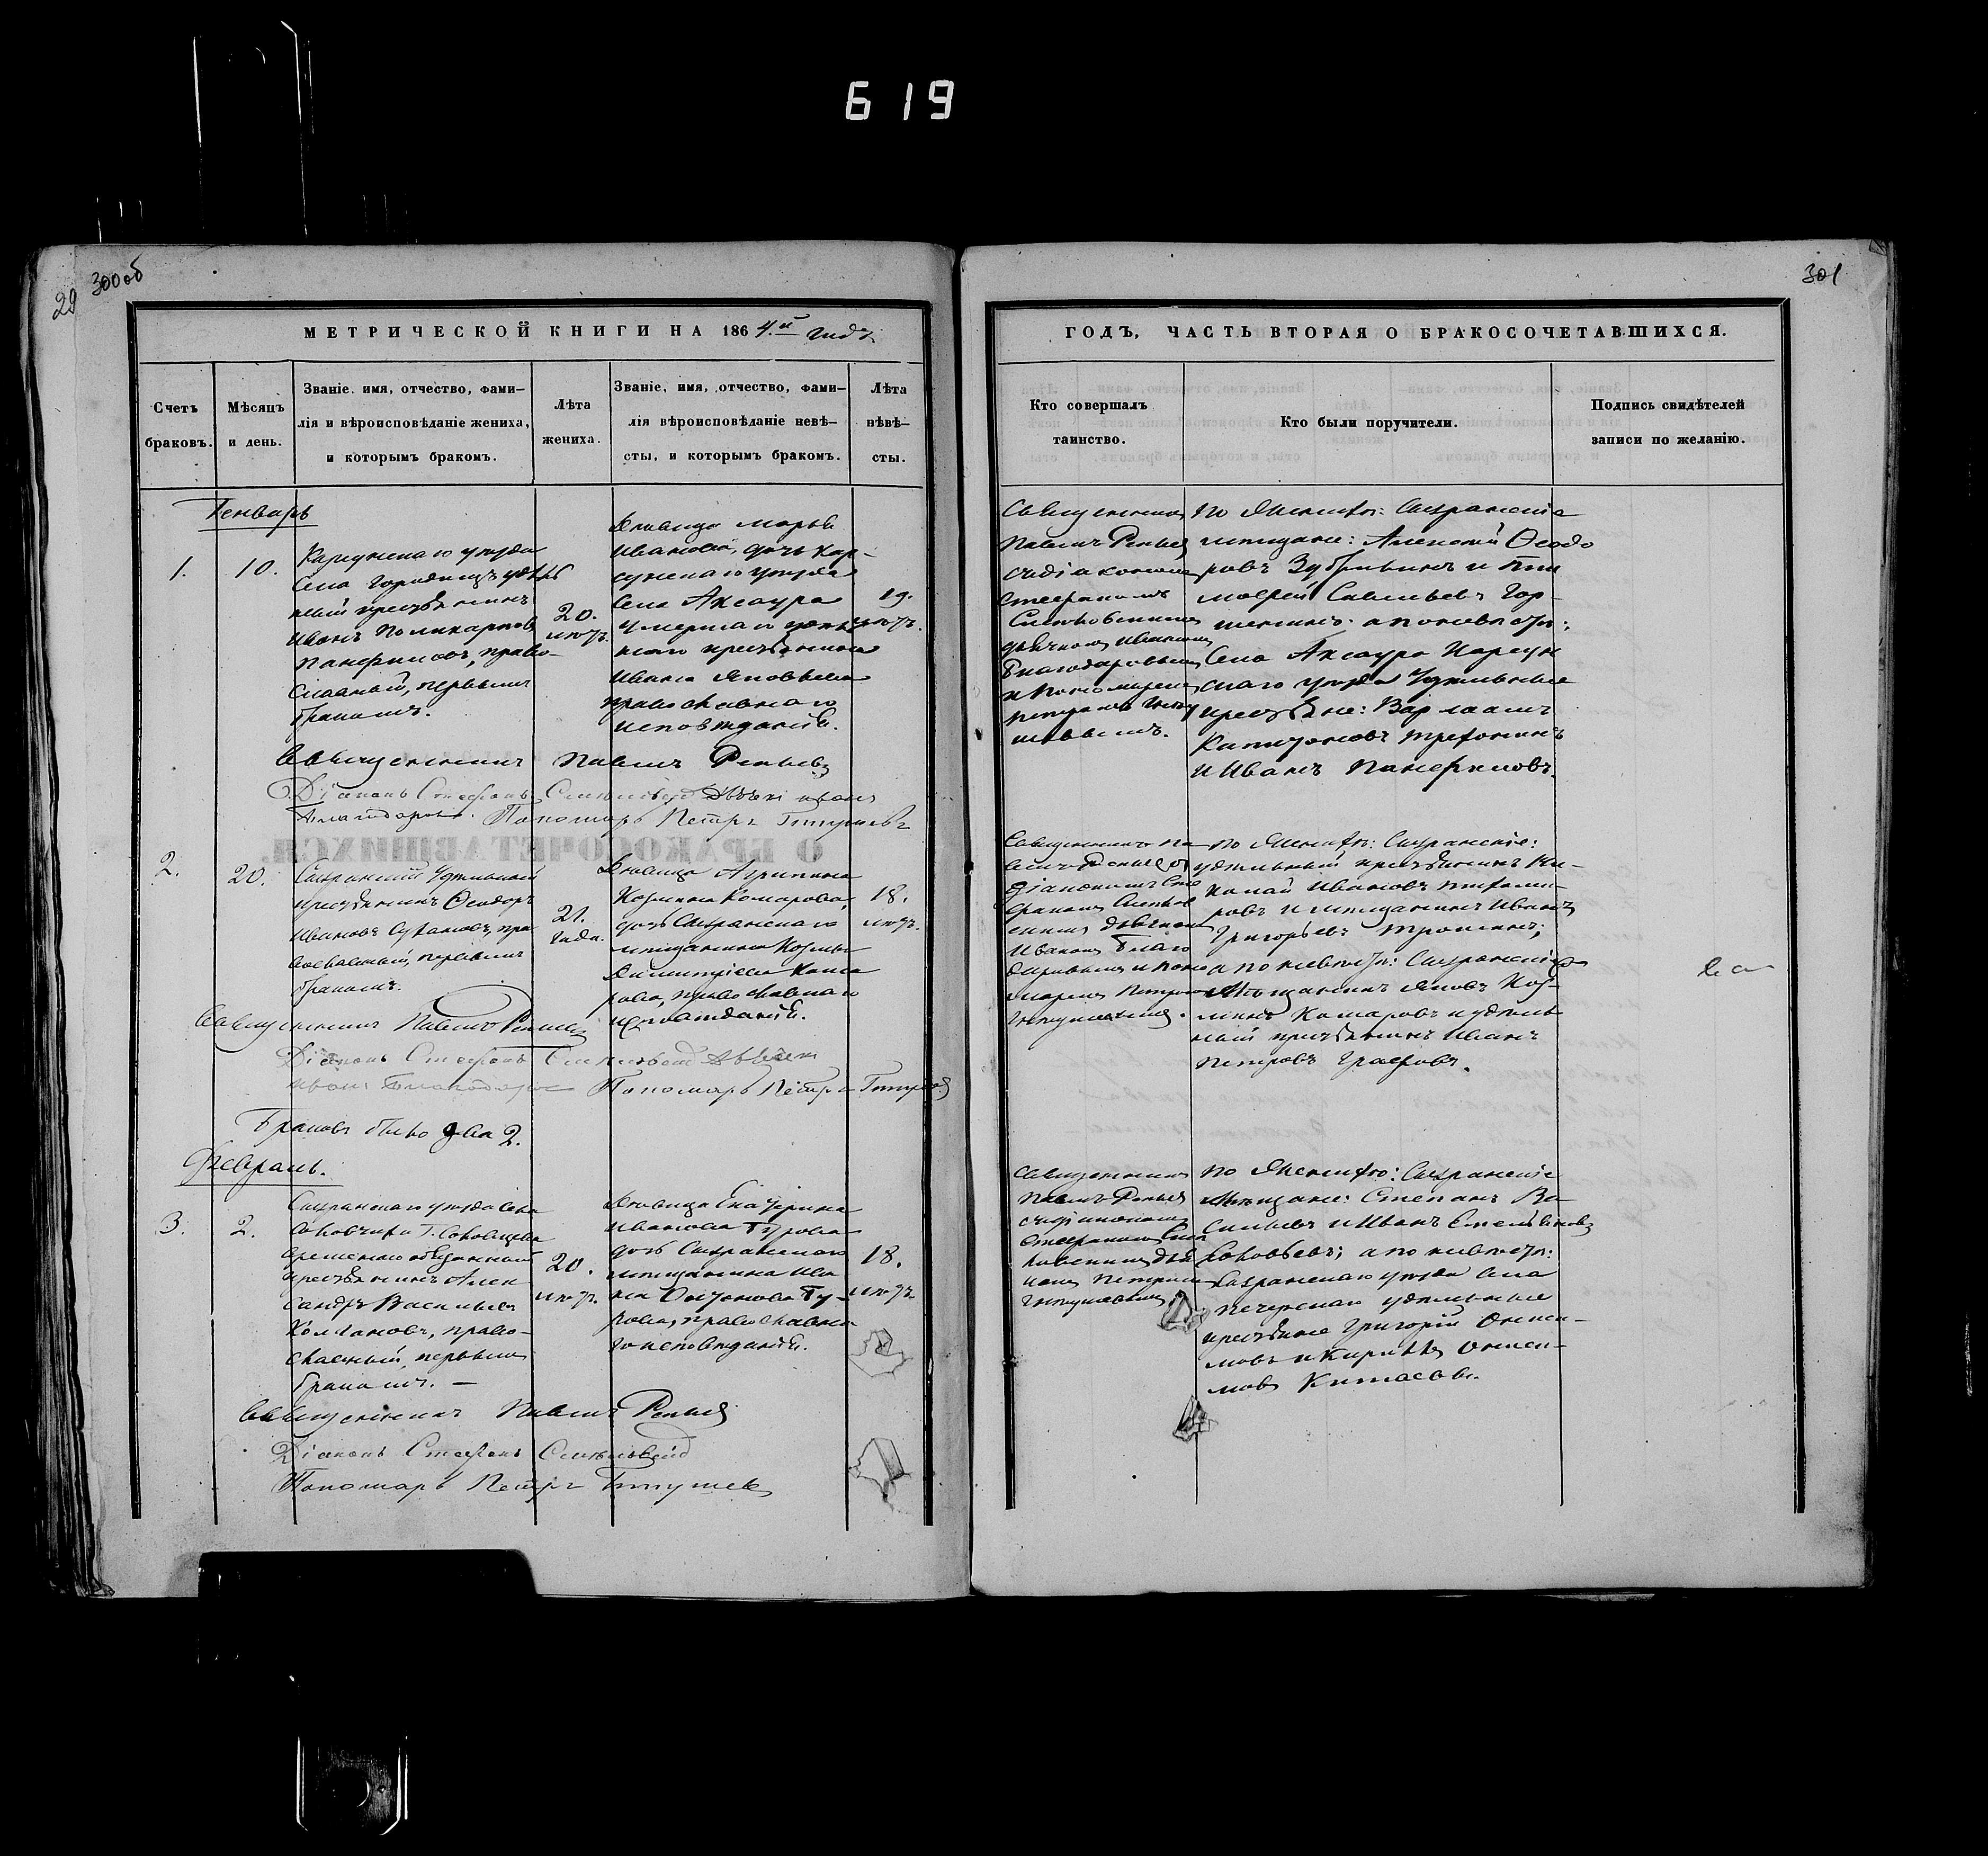 619
29
300об
301
МЕТРИЧЕСКОЙ КНИГИ НА 1864.й годъ
Счетъ браковъ.
Мѣсяцъ и день.
Званіе. имя, отчество, фами-
лія и вѣроисповѣданіе жениха,
и которымъ бракомъ.
Лѣта жениха.
Званіе, имя, отчество, фами-
лія вѣроисповѣданіе невѣ-
сты, и которымъ бракомъ.
Лѣта нѣвѣ-
сты.
Генварь
1.
10.
Карсунскаго уѣзда
Села Городищъ удѣль
ный крестьянинъ
Иванъ Поликарповъ
Панфиловъ, право-
славный, первымъ
бракомъ.
20.
лѣтъ.
Дѣвица Марья
Иванова, дочь Кар-
сунскаго уѣзда
Села Аксаура
умершаго удѣль
наго крестьянина
Ивана Яковлева
православнаго
исповѣданія.
19.
лѣтъ.
Священникъ Павелъ
Діаконъ Стефанъ
Пономарь Петръ
2.
20.
Сызранскій Удѣльный
крестьянинъ Ѳеодоръ
Ивановъ Сухановъ, пра
вославный, первымъ
бракомъ.
21.
года.
Дѣвица Агрипина
Козмина Комарова,
дочь Сызранскаго
мѣщанина Козмы
Димитріева Кома
рова, православнаго
исповѣданія.
18.
лѣтъ.
Священникъ Павелъ
Діаконъ Стефанъ
Иванъ Благодаров
Пономарь Петръ
Браковъ было два 2.
Февраль.
3.
2.
Сызранскаго уѣзда Села
временно обязанный
крестьянинъ Алек
сандръ Васильевъ
Колгановъ, право-
славный, первымъ
бракомъ. —
20.
лѣтъ.
Дѣвица Екатерина
Иванова Гурова
дочь Сызранскаго
мѣщанина Ива
на Гу-
рова, православна
го исповѣданія.
18.
лѣтъ.
Священникъ Павелъ
Діаконъ Стефанъ
Пономарь Петръ
ГОДЪ, ЧАСТЬ ВТОРАЯ О БРАКОСОЧЕТАВШИХСЯ.
Кто совершалъ
таинство.
Кто были поручители.
Подпись свидѣтелей
записи по желанію.
Священникъ
Павелъ
съ діакономъ
Стефаномъ
дьячкомъ Иваномъ
Благодаровымъ
и Пономаремъ
Петромъ
По Женихѣ: Сызранскіе
мѣщане: Алексій Ѳеодо
ровъ Зубрилинъ и Тим
моѳей Савельевъ Гор-
шенинъ; а по невѣстѣ:
Села Аксаура Карсун
скаго уѣзда Удѣльные
крестьяне: Варлаамъ
Трифонинъ
и Иванъ Панфиловъ.
Священникъ Па
велъ съ
діакономъ Сте
фаномъ
дьячкомъ
Иваномъ Благо
даровымъ и Поно
маремъ Петромъ
По Женихѣ: Сызранскіе:
удѣльный крестьянинъ Ни-
колай Ивановъ
и мѣщанинъ Иванъ
Григорьевъ
а по невѣстѣ: Сызранскіе
Мѣщанинъ Яковъ Коз-
минъ Комаровъ и удѣль
ный крестьянинъ Иванъ
Петровъ Графовъ.
Священникъ
Павелъ
съ діакономъ
Стефаномъ
Петромъ
По Женихѣ: Сызранскіе
Мѣщане: Степанъ Ва-
сильевъ и Иванъ Емельяновъ
а по невѣстѣ:
Сызранскаго уѣзда Села
Печерскаго удѣльные
крестьяне Григорій Ониси-
мовъ и Кириллъ Ониси-
мовъ Китаевы.